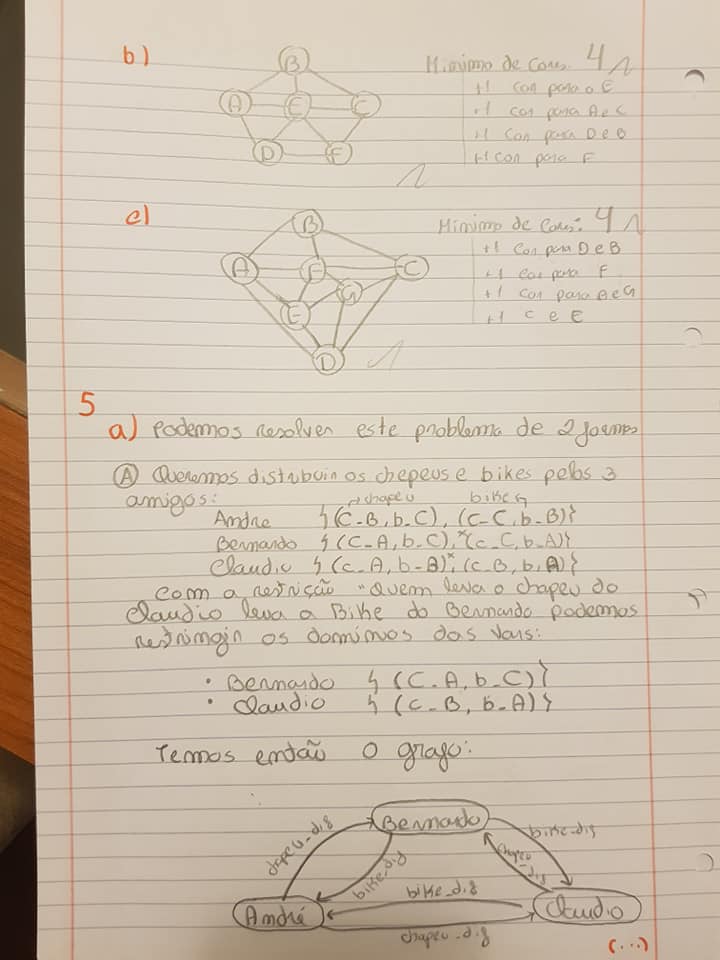 b)
B
A E C
D F
Minimo de Cores: 4
+1 Cor para o E
+1 Cor para A e C
+1 Cor para D e B
+1 Cor para F
c)
B
A F C
G
E
D
Minimo de Cores: 4
+1 Cor para D e B
+1 Cor para F
+1 Cor para A e G
+1 C e E
5
a) Podemos resolver este problema de 2 formas
(A) Queremos distribuir os chepeus e bikes pelos 3
amigos:
chapeu bikes
Andre {(C_B, b_C), (C_C, b_B)}
Bernardo {(C_A, b_C), *(c_C, b_A)}
Claudio {(c_A, b_B)*, (c_B, b_A)}
Com a restrição "Quem leva o chapeu do
Claudio leva a Bike do Bernardo podemos
restringir os dominios das Vars:
• Bernardo {(C_A, b_C)}
• Claudio {(c_B, b_A)}
Temos então o grafo:
Bernardo
chapeu_dif
bike_dif
bike_dif
chapeu_dif
bike_dif
André
Claudio
chapeu_dif
(...)